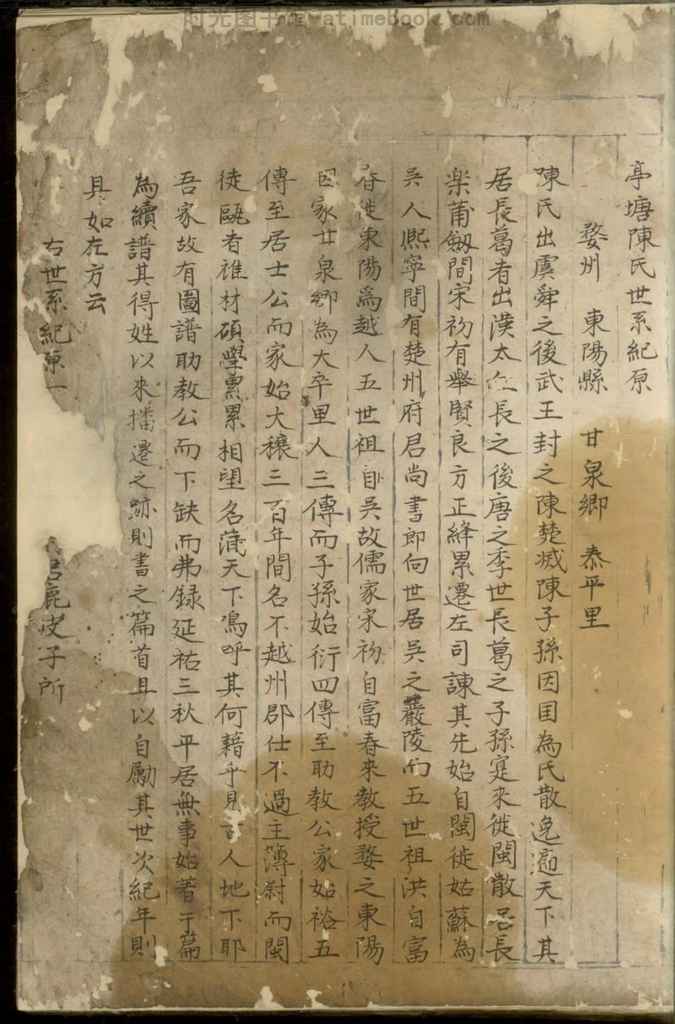 时光图书馆 atimebook.com
亭塘陳氏世系紀原
婺州 東陽縣 甘泉鄉 泰平里
陳氏出虞舜之後武王封之陳楚滅陳子孫因国為氏散逸遍天下其
居長葛者出漢太丘長之後唐之季世長葛之子孫寔来徙閩散居長
楽莆劔間宋初有舉賢良方正絳累遷左司諫其先始自閩徙姑蘇為
吳人熈寧間有楚州府君尚書郎向世居吳之嚴陵而五世祖洪自富
春徙東陽爲越人五世祖自吳故儒家宋初自富春来教授婺之東陽
因家甘泉鄉為大卒里人三傳而子孫始衍四傳至助教公家始裕五
傳至居士公而家始大穰三百年間名不越州郡仕不過主簿尉而閩
徙甌者雄材碩學勲累相望名滿天下嗚呼其何藉乎見古人地下耶
吾家故有圖譜助教公而下缺而弗録延祐三秋平居無事始著干篇
為續譜其得姓以来播遷之跡則書之篇首且以自勵其世次紀年則
具如左方云
右世系紀原一 鹿皮子所